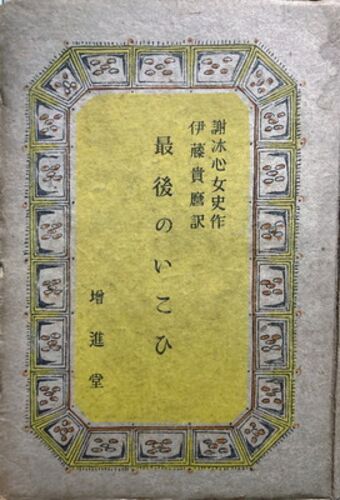 謝冰心女史作
伊藤貴麿訳
最後のいこひ
增進堂